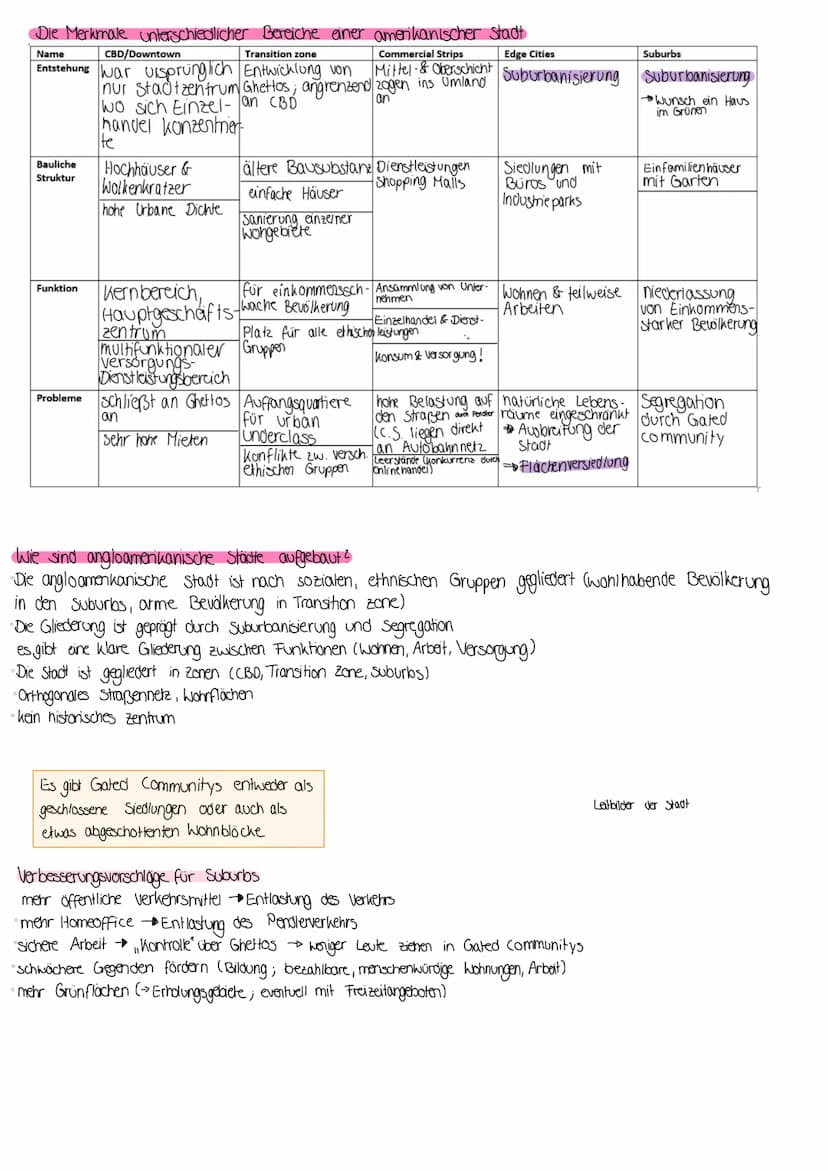 Die Merkmale unterschiedlicher Bereiche einer amerikanischer Stadt
Name CBD/Downtown Transition zone Commercial Strips Edge Cities Suburbs
Entstehung
war ursprünglich
nur Stadtzentrum
wo sich Einzel-
handel konzentrier-
te
Entwicklung von
Ghettos, angrenzend
an CBD
Mittel- & Oberschicht
zogen ins Umland
an
Suburbanisierung
Suburbanisierung
→ Wunsch ein Haus
im Grünen
Bauliche
Struktur
Hochhäuser &
Wolkenkratzer
hohe Urbane Dichte
ältere Bausubstanz
einfache Häuser
Sanierung einzelner
Wohgebiete
Dienstleistungen
Shopping Malls
Siedlungen mit
Büros und
Industrieparks
Einfamilienhäuser
mit Garten
Funktion
Kernbereich,
Hauptgeschäfts-
zentrum
multifunktionaler
Versorgungs-
Dienstleistungsbereich
für einkommenssch-
wache Bevölkerung
Platz für alle ethischen
Gruppen
Ansammlung von Unter-
nehmen
Einzelhandel & Dienst-
leistungen
Konsum & Versorgung!
Wohnen & teilweise
Arbeiten
Niederlassung
von Einkommens-
starker Bevölkerung
Probleme
schließt an Ghettos
an
sehr hohe Mieten
Auffangsquartiere
für urban
underclass
Konflikte zw. versch.
ethischen Gruppen
hohe Belastung auf
den Straßen durch Pendler
(C.S. liegen direkt
an Autobahnnetz
Leerstände (Konkurrenz durch
Onlinehandel)
natürliche Lebens-
räume eingeschränkt
→ Ausbreitung der
Stadt
⇒ Flächenversiedlung
Segregation
durch Gated
community
Wie sind angloamerikanische Städte aufgebaut?
·Die angloamerikanische Stadt ist nach sozialen, ethnischen Gruppen gegliedert (wohlhabende Bevölkerung
in den Suburbs, arme Bevölkerung in Transition zone)
·Die Gliederung ist geprägt durch Suburbanisierung und Segregation
es gibt eine klare Gliederung zwischen Funktionen (Wohnen, Arbeit, Versorgung)
·Die Stadt ist gegliedert in Zonen (CBD, Transition Zone, Suburbs)
·Orthogonales Straßennetz, Wohnflächen
·kein historisches Zentrum
Es gibt Gated Communitys entweder als
geschlossene Siedlungen oder auch als
etwas abgeschottenten Wohnblöcke
Leitbilder der Stadt
Verbesserungsvorschläge für Suburbs
mehr öffentliche Verkehrsmittel → Entlastung des Verkehrs
·mehr Homeoffice → Entlastung des Pendlerverkehrs
·sichere Arbeit → „Kontrolle" über Ghettos → weniger Leute ziehen in Gated Communitys
·schwächere Gegenden fördern (Bildung; bezahlbare, menschenwürdige Wohnungen, Arbeit)
·mehr Grünflächen (→ Erholungsgebiete; eventuell mit Freizeitangeboten)